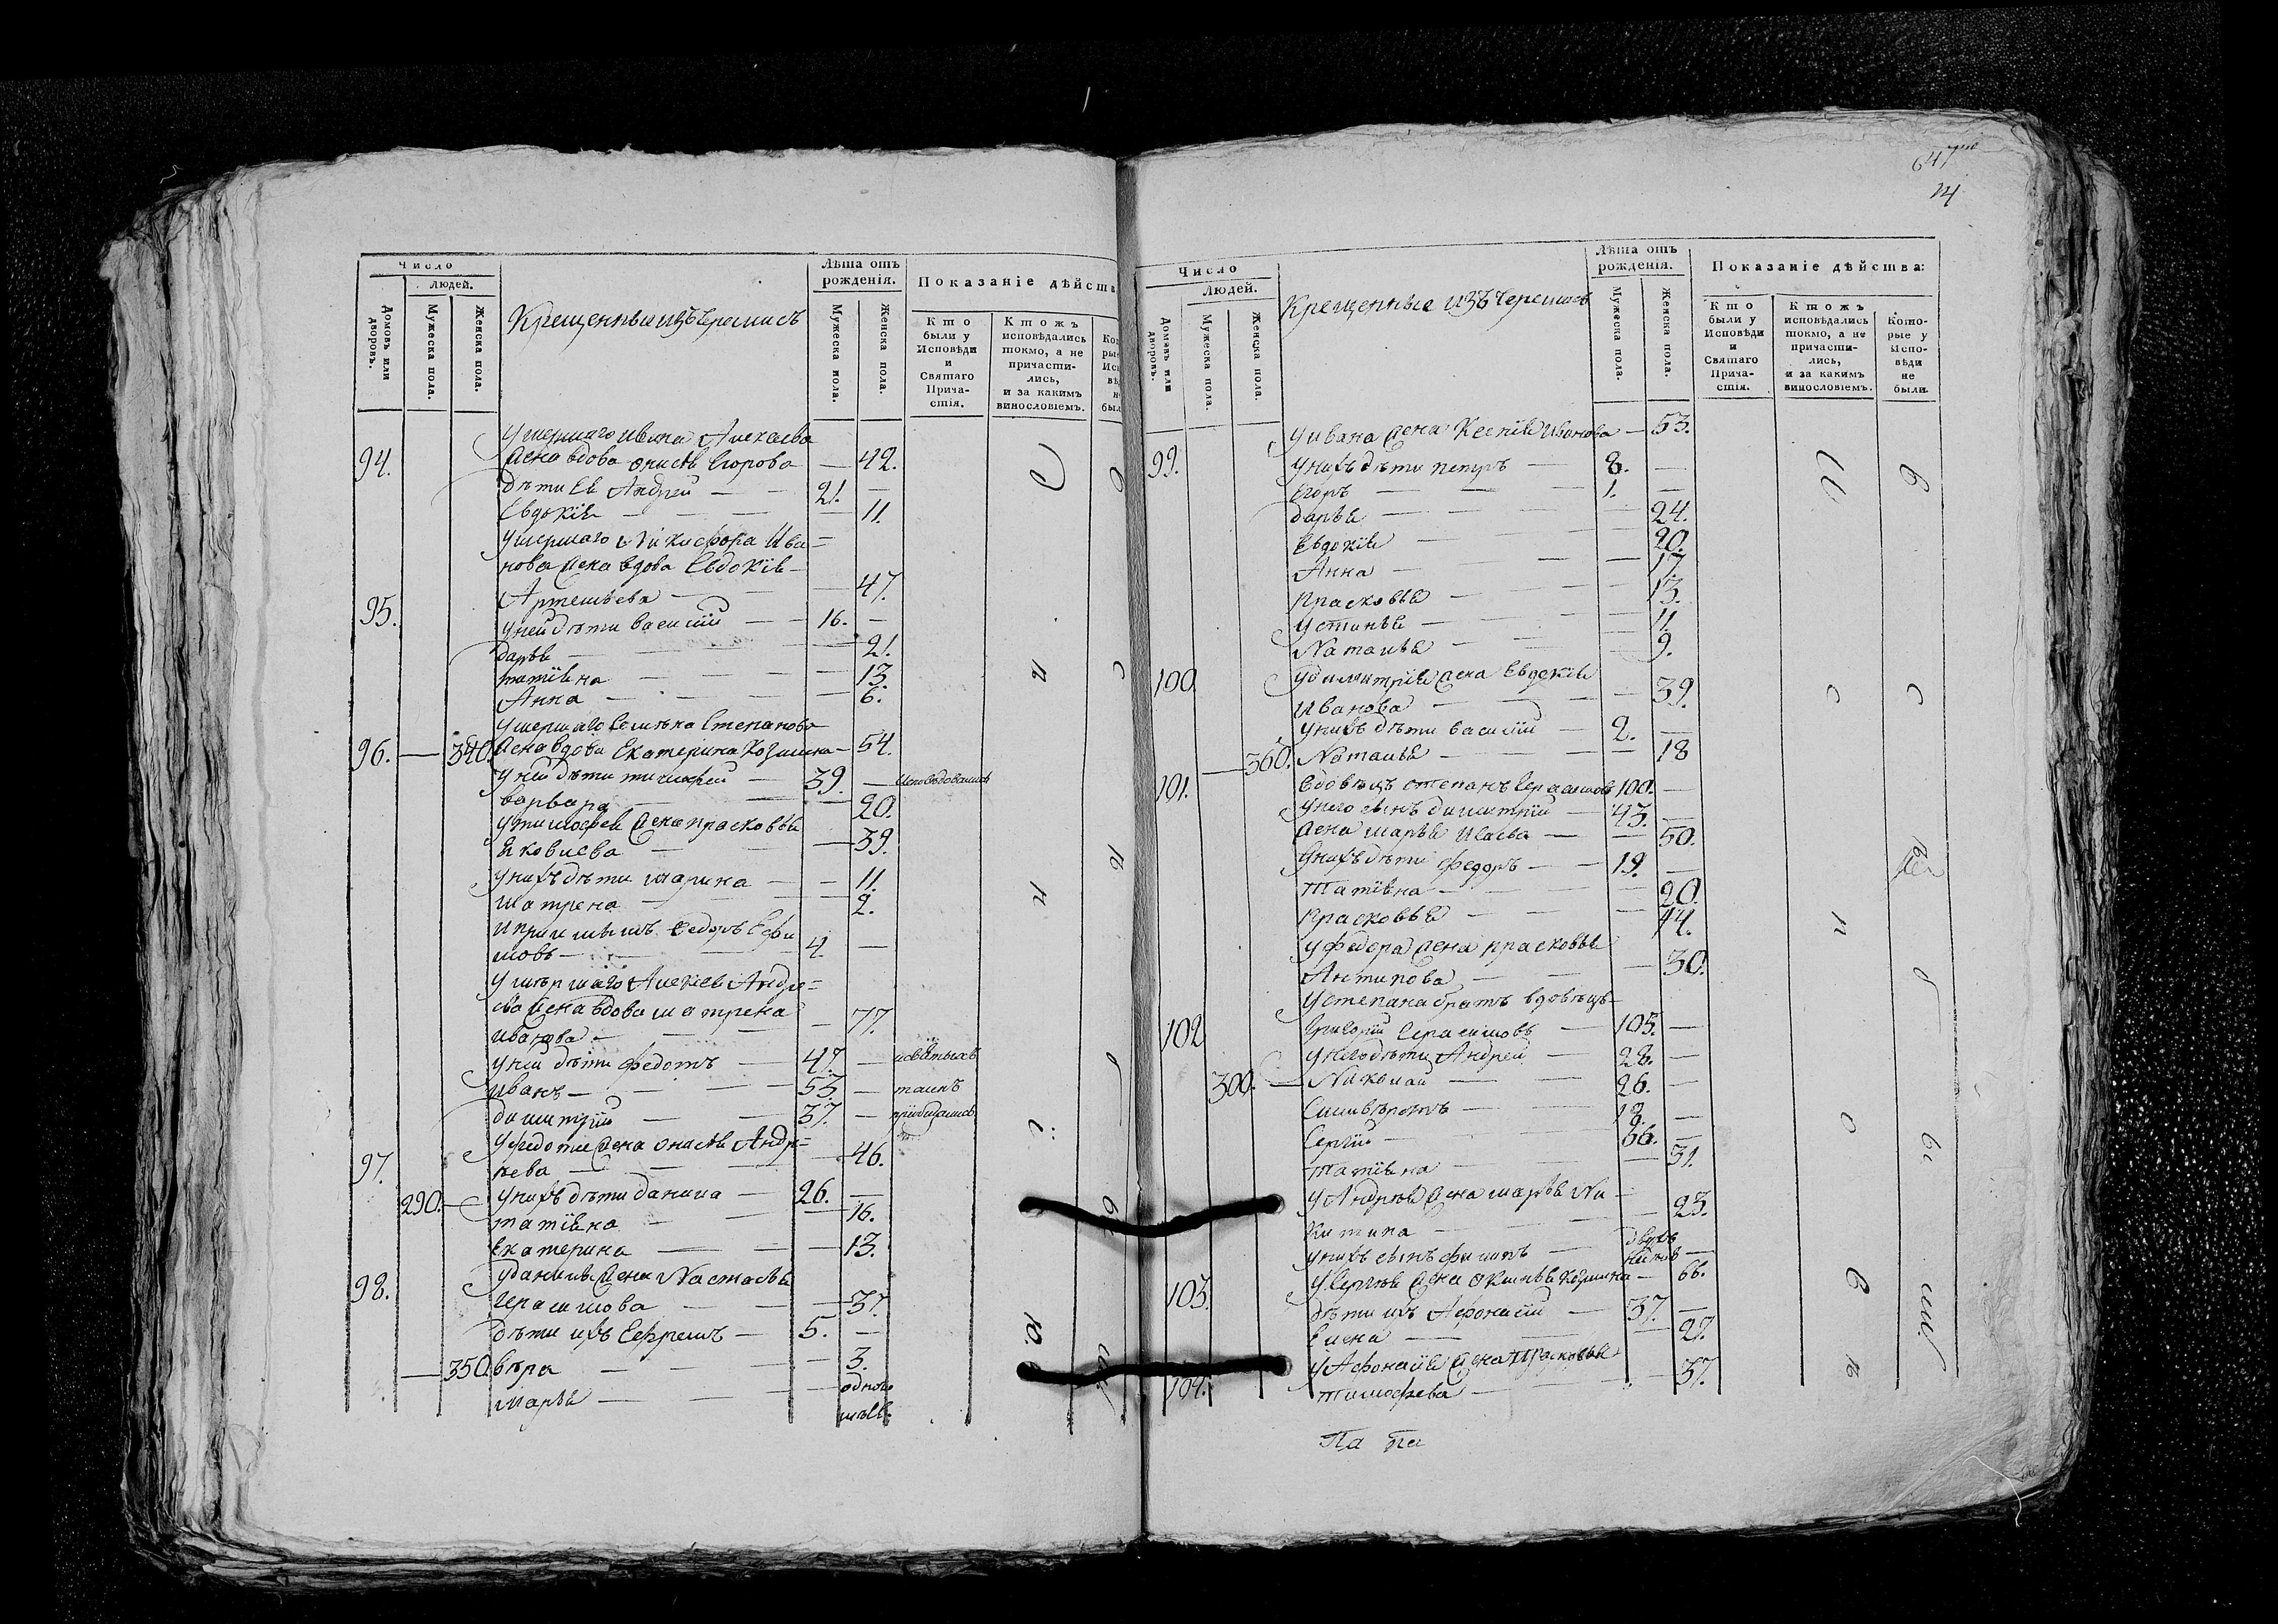 Число
людей.
Домовъ или дворовъ.
Мужеска пола.
Женска пола.
Крещенныи изъ черемисъ
Лѣта отъ рожденія.
Мужеска пола.
Женска пола.
Показаніе дѣйств
Кто были у Исповѣди и Святаго Прича-стія.
Ктожъ исповѣдались токмо, а не причасти-лись, и за какимъ винословіемъ.
умершаго ивана Алексаева
94. жена вдова Егорова — 42.
дѣти ея Андрей — 21. —
Евдокія — 11.
умершаго Никифора Ива=
нова жена вдова Евдокія
95. Артемьева — 47.
у ней дѣти василій — 16. —
дарья — 21.
татіяна — 13.
Анна — 6.
умершаго Степанова
96. — 340. жена вдова Екатерина Козмина — 54.
у ней дѣти тимофей — 39. — исповѣдовались
варвара — 20.
у тимофея жена прасковья
Яковлева — 39.
у нихъ дѣти марина — 11.
матрена — 2.
Федоръ Ефи
мовъ — 4. —
умершаго Алексея Андре=
ева жена вдова матрена
иванова — 77.
у ней дѣти федотъ — 47. — и святыхъ
иванъ — 53. — таинъ
димитрій — 37. — пріобщались
97. у федота жена Андре=
яева — 46.
290. — у нихъ дѣти данила — 26. —
татіяна — 16.
Екатерина — 13.
98. у данилы жена Настасья
Герасимова — 37.
дѣти ихъ Ефремъ — 5. —
— 350. вѣра — 3.
марья — одного
647
14
Число
людей.
Домовъ или дворовъ.
Мужеска пола.
Женска пола.
Крещенные изъ черемисъ
Лѣта отъ рожденія.
Мужеска пола.
Женска пола.
Показаніе дѣйства:
Кто были у Исповѣди и Святаго Прича-стія.
Ктожъ исповѣдались токмо, а не причасти-лись, и за какимъ винословіемъ.
Кото-рые у Испо-вѣди не были.
у ивана жена Ксенія Иванова — 53.
99. у нихъ дѣти петръ — 8. —
Егоръ — 1. —
дарья — 24.
Евдокія — 20.
Анна — 17.
прасковья — 13.
устинья — 11.
Наталья — 9.
100 у димитрія жена Евдокія
Иванова — 39.
у нихъ дѣти василій — 2. —
— 360. Наталья — 18
101. вдовецъ степанъ Герасимовъ 100. —
у него сынъ димитрій — 43. —
жена марья Исаева — 50.
у нихъ дѣти федоръ — 19. —
татіяна — 20.
прасковья — 14.
у федора жена прасковья
Антипова — 30.
у степана братъ вдовецъ
102 Григорій Герасимовъ — 105. —
у него дѣти Андрей — 28. —
300. — Николай — 26. —
— 18. —
Сергій — 66. —
татіяна — 31.
у Андрея жена марья Ни
китина — 23.
у нихъ сынъ филипъ — двухъ —
103. у Сергея жена Козмина — 66.
дѣти ихъ Афонасій — 37. —
Елена — 27.
у Афонасія жена прасковья
104. тимофеева — 37.